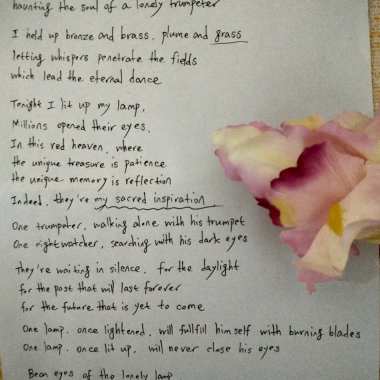 haunting the soul of a lonely trumpeter
I held up bronze and brass. plume and grass
letting whispers penetrate the fields
which lead the eternal dance
Tonight I lit up my lamp,
Millions opened their eyes.
In this red heaven, where
the unique treasure is patience
the unique memory is reflection
Indeed, they're my sacred inspiration
One trumpeter, walking alone with his trumpet
One nightwatcher, searching with his dark eyes
They're waiting in silence. for the daylight
for the past that will last forever
for the future that is yet to come
One lamp. once lightened, will fullful himself with burning blades
One lamp. once lit up, will never close his eyes
Been eyes of the lonely lamp